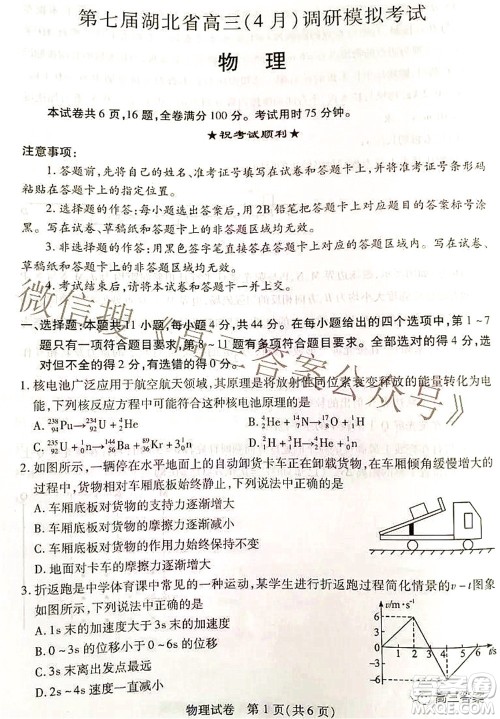 第七届湖北省高三(4月)调研模拟考试
物 理
本试卷共6页,16题,全卷满分100分。考试用时75分钟。
★祝考试顺利★
注意事项:
1.答题前,先将自己的姓名、准考证号填写在试卷和答题卡上,并将准考证号条形码
粘贴在答题卡上的指定位置。
2.选择题的作答:每小题选出答案后,用2B铅笔把答题卡上对应题目的答案标号涂
黑。写在试卷、草稿纸和答题卡上的非答题区域均无效。
3.非选择题的作答:用黑色签字笔直接答在答题卡上对应的答题区域内。写在试卷、
草稿纸和答题卡上的非答题区域均无效。
4.考试结束后,请将本试卷和答题卡一并上交。
一、选择题:本题共11小题,每小题4分,共44分。在每小题给出的四个选项中,第1~7
题只有一项符合题目要求,第8~11题有多项符合题目要求。全部选对的得4分,选
对但不全的得2分,有选错的得0分。
1.核电池广泛应用于航空航天领域,其原理是将放射性同位素衰变释放的能量转化为电
能,下列核反应方程中可能符合这种核电池原理的是
A. ²³⁸₉₄Pu→²³⁴₉₂U+⁴₂He B. ¹⁴₇N+⁴₂He→¹⁷₈O+¹₁H
C. ²³⁵₉₂U+¹₀n→¹⁴⁴₅₆Ba+⁸⁹₃₆Kr+3¹₀n D. ²₁H+³₁H→⁴₂He+¹₀n
2.如图所示,一辆停在水平地面上的自动卸货卡车正在卸载货物,在车厢倾角缓慢增大的
过程中,货物相对车厢底板始终静止。下列说法中正确的是
A.车厢底板对货物的支持力逐渐增大
B.车厢底板对货物的摩擦力逐渐增大
C.车厢底板对货物的作用力始终不变
D.地面对卡车的摩擦力逐渐增大
3.折返跑是中学体育课中常见的一种运动,某学生进行折返跑过程简化情景的v-t图象
如图所示,下列说法中正确的是
A.1s末的速度大于5s末的速度
B.0~2s的位移小于0~6s的位移
C.3s末发生了折返
D.3s末的加速度与5s末的加速度相同
v/(m·s⁻¹)
6
0
2
4
6
t/s
-6
物理试卷 第1页(共6页)
微信搜《高三答案公众号》
高三答案